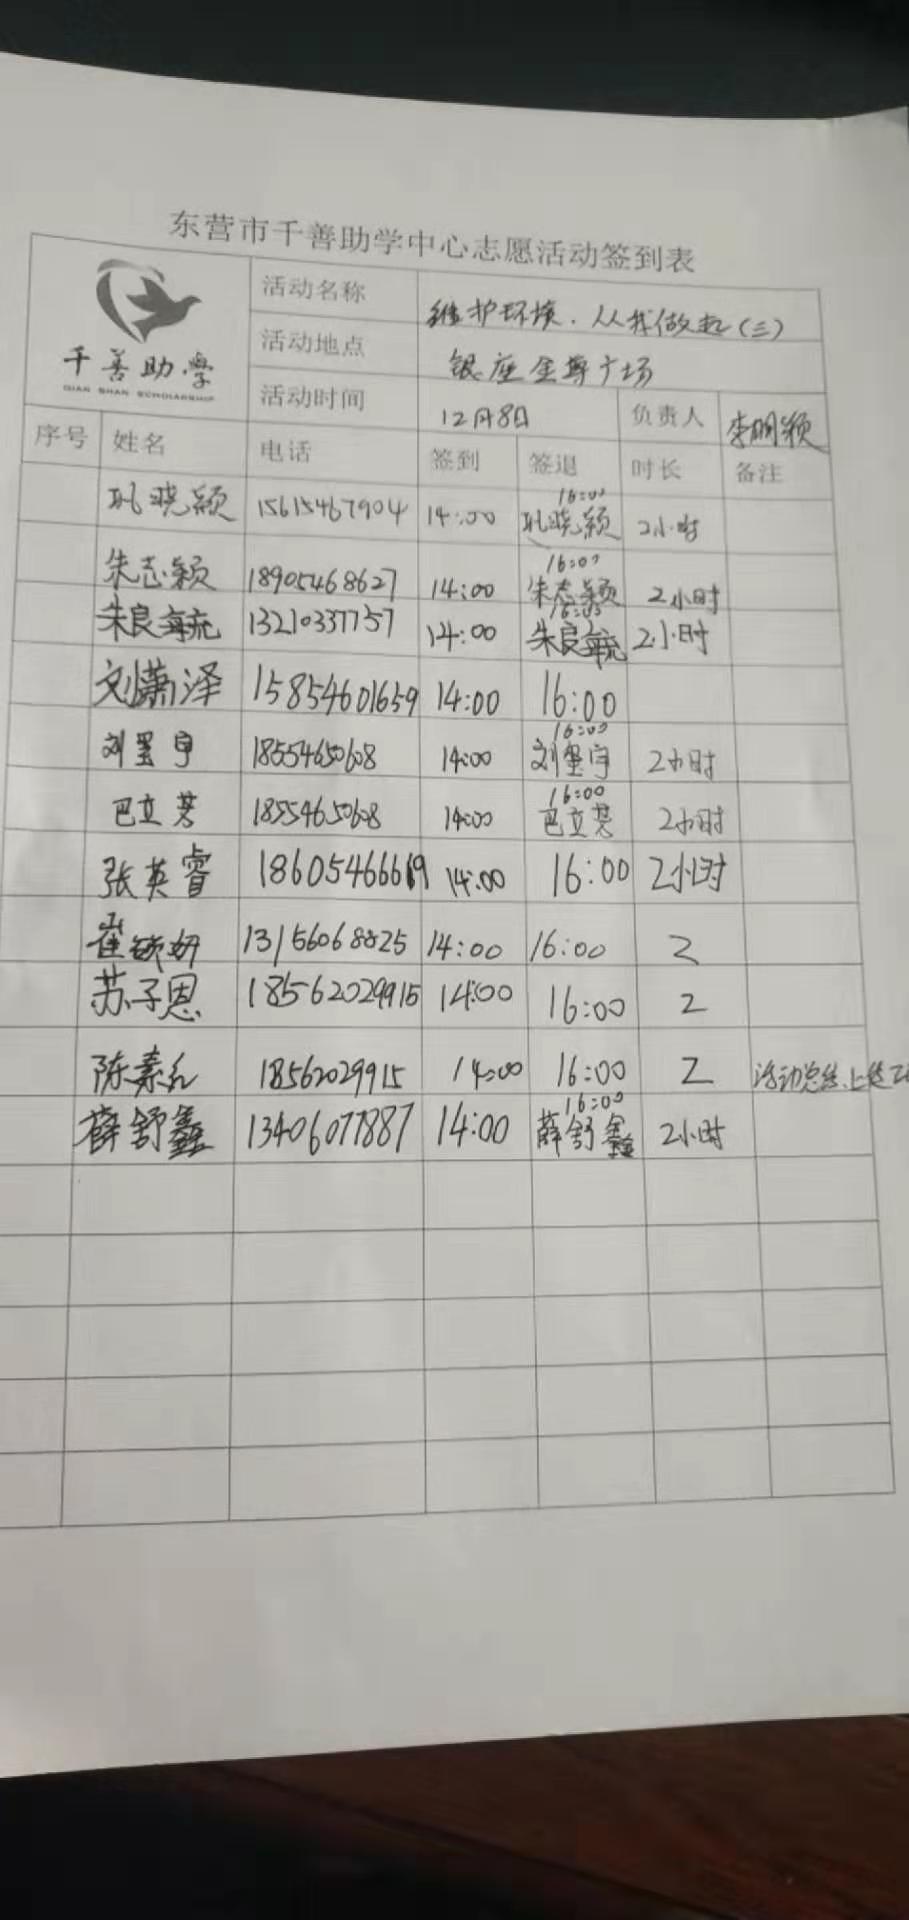 东营市千善助学中心志愿活动签到表
千善助学
QIAN SHAN SCHOLARSHIP
活动名称 维护环境.从我做起(三)
活动地点 银座金尊广场
活动时间 12月8日 负责人 李明颖
序号 姓名 电话 签到 签退 时长 备注
巩晓颖 15615467904 14:00 16:00 巩晓颖 2小时
朱志颖 18905468627 14:00 16:00 朱志颖 2小时
朱良毓 13210337757 14:00 16:00 朱良毓 2小时
刘潇泽 15854601659 14:00 16:00
刘墨宇 18554650608 14:00 16:00 刘墨宇 2小时
巴立芳 18554650608 14:00 16:00 巴立芳 2小时
张英睿 18605466619 14:00 16:00 2小时
崔妍 13156068825 14:00 16:00 2
苏子恩 18562029915 14:00 16:00 2
陈素红 18562029915 14:00 16:00 2 活动总结.上传
薛舒鑫 13406077887 14:00 16:00 薛舒鑫 2小时